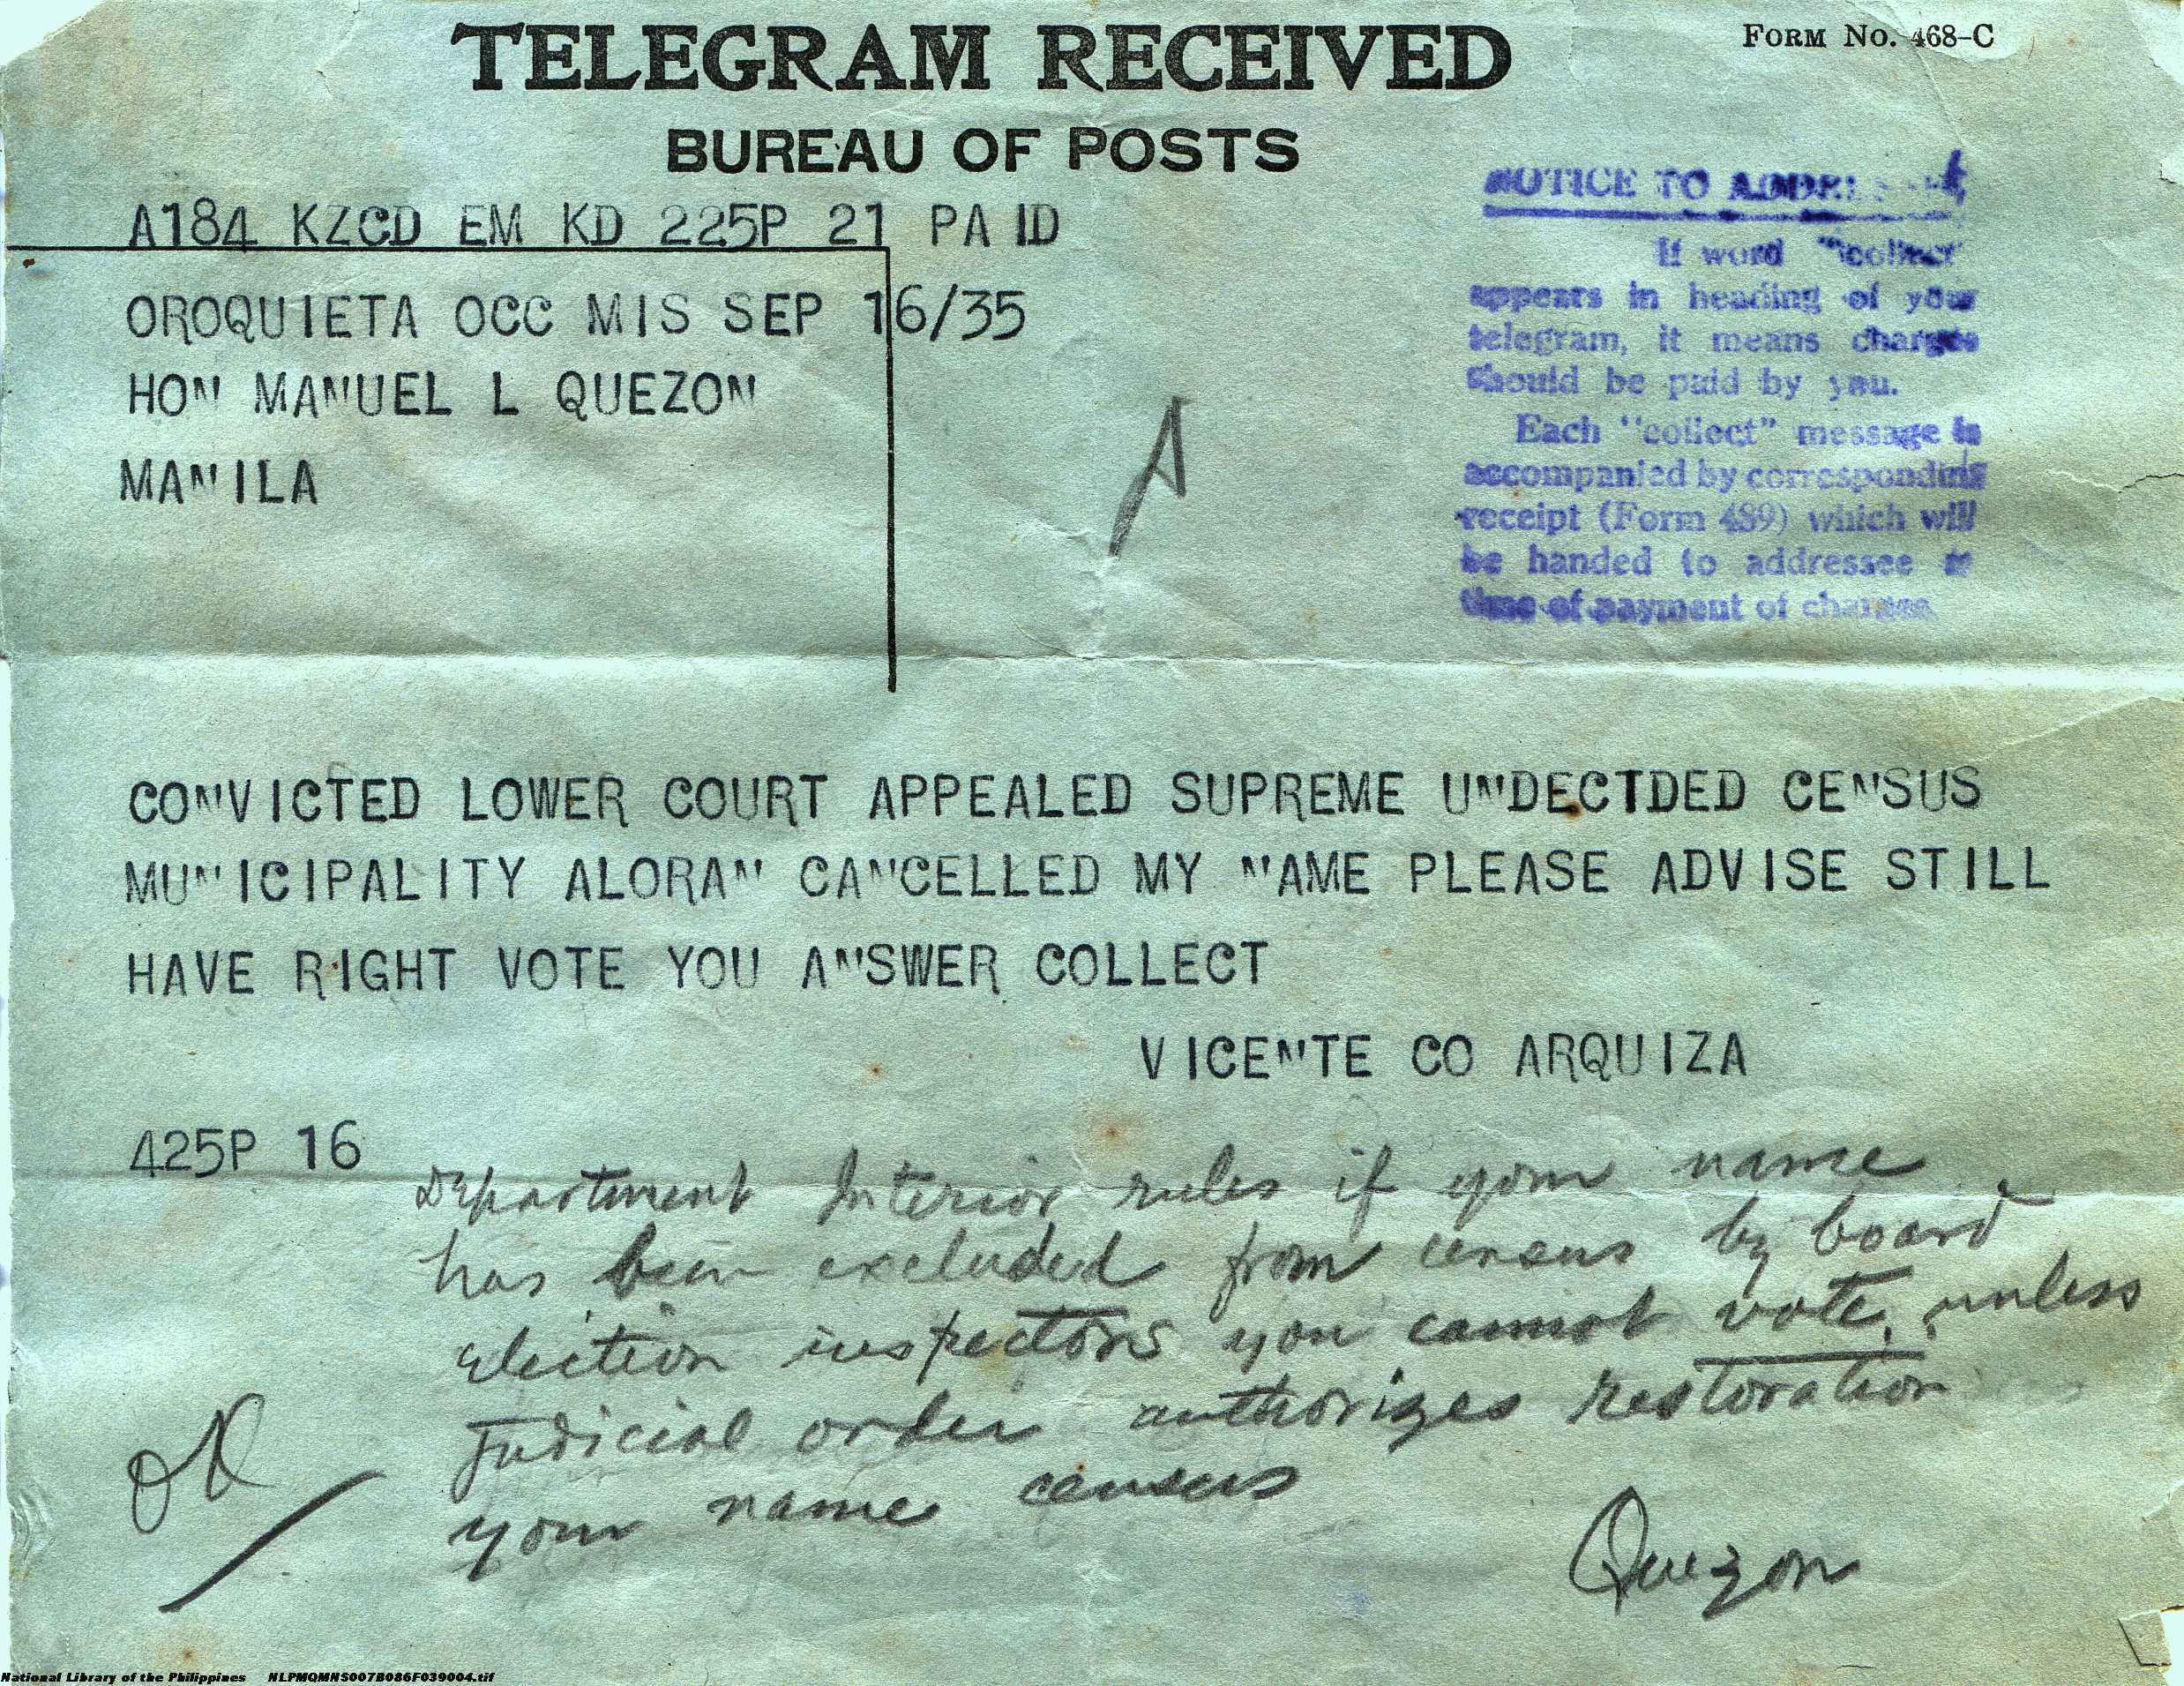 TELEGRAM RECEIVED
FORM NO. 468-C
BUREAU OF POSTS
A184 KZCD EM KD 225P 21 PA ID
OROQUIETA OCC MIS SEP 16/35
HON MANUEL L QUEZON
MANILA
A
NOTICE TO
If word "collect"
appears in heading of your
telegram, it means charges
should be paid by you.
Each "collect" message is
accompanied by corresponding
receipt (Form 489) which will
be handed to addressee
time of payment of charges
CONVICTED LOWER COURT APPEALED SUPREME UNDECTDED CENSUS
MUNICIPALITY ALORAN CANCELLED MY NAME PLEASE ADVISE STILL
HAVE RIGHT VOTE YOU ANSWER COLLECT
VICENTE CO ARQUIZA
425P 16
Department Interior rules if your name
has been excluded from census by board
election inspectors you cannot vote unless
judicial order authorizes restoration
your name census
OK
Quezon
National Library of the Philippines NLPMQMNS007B086F039004.tif